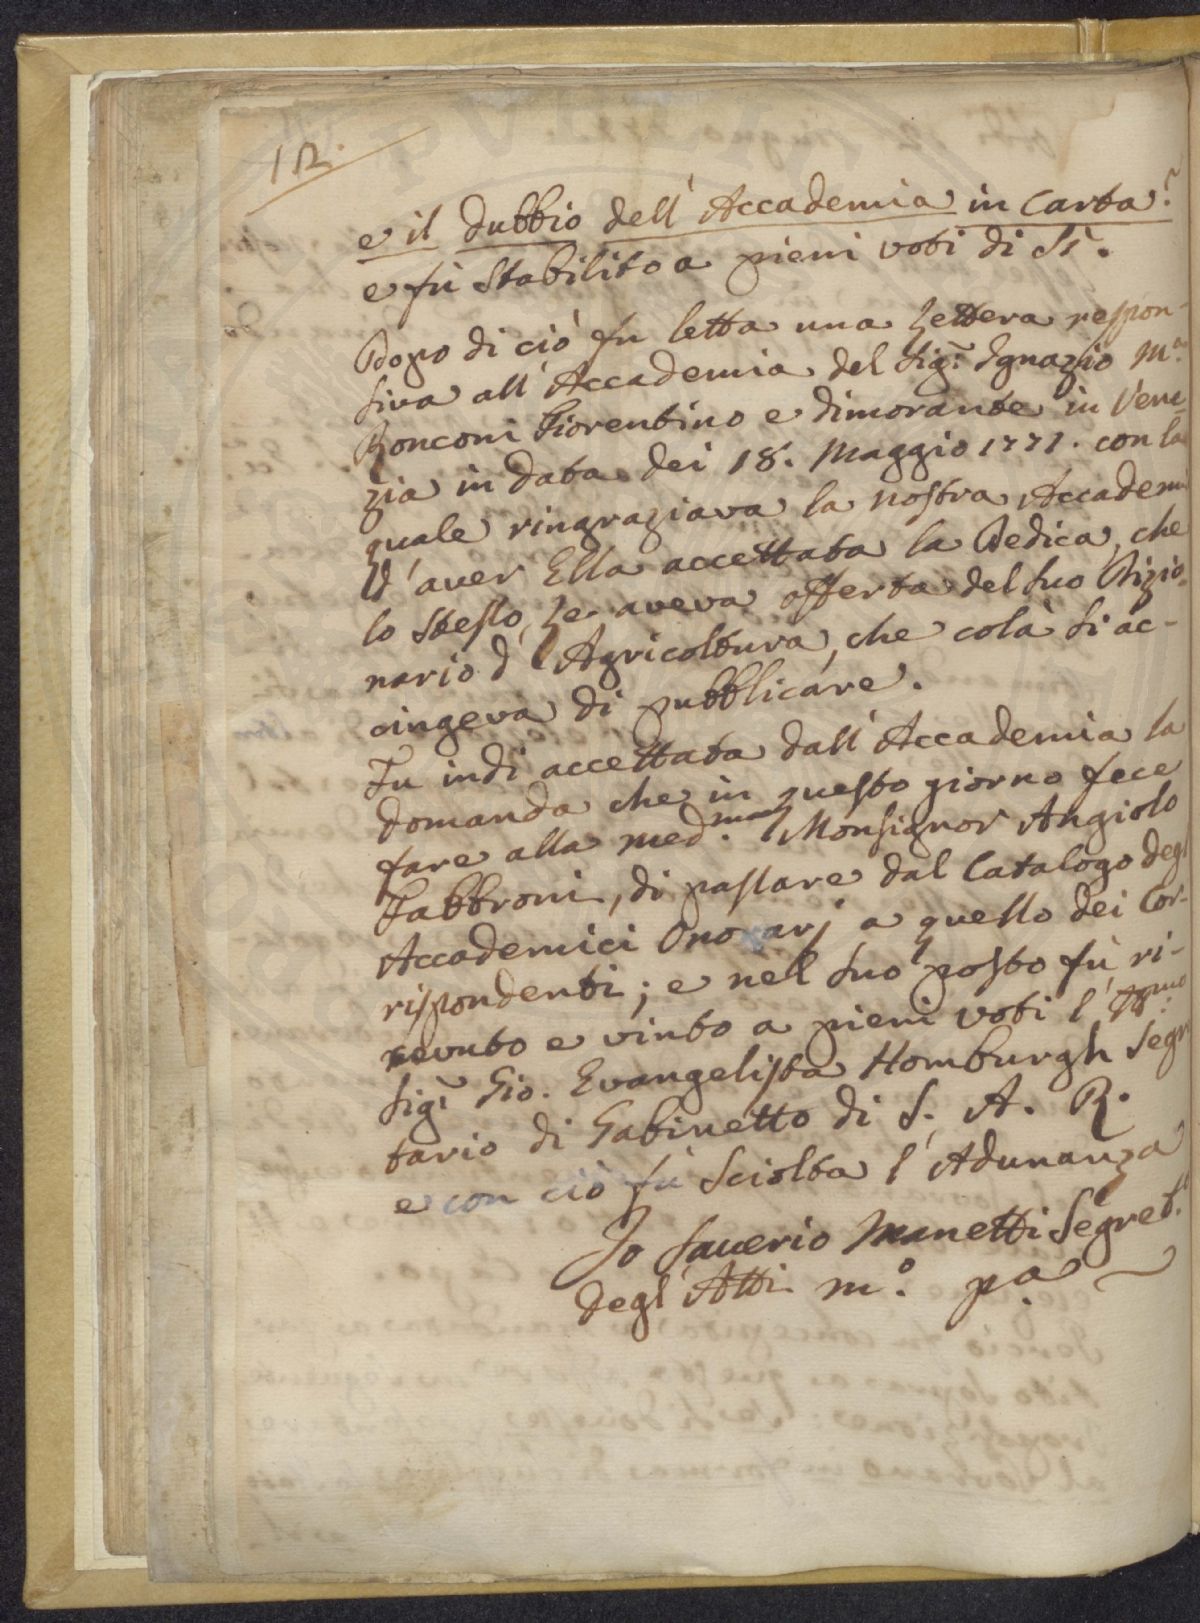 112.
e il dubbio dell'Accademia in Carta?
e fù stabilito a pieni voti di sì.
Dopo di ciò fu letta una Lettera respon-
siva all'Accademia del Sig.r Ignazio M.a
Ronconi Fiorentino e dimorante in Vene-
zia in data dei 18. Maggio 1771. con la
quale ringraziava la nostra Accademi
d'aver Ella accettata la Dedica, che
lo stesso Le aveva offerta del suo Dizio-
nario d'Agricoltura, che colà si ac-
cingeva di pubblicare.
Fu indi accettata dall'Accademia la
domanda che in questo giorno fece
fare alla med.ma Monsignor Angiolo
Fabbroni, di passare dal Catalogo degl
Accademici Onorarj a quello dei Cor-
rispondenti; e nel suo posto fù ri-
cevuto e vinto a pieni voti l'Ill.mo
Sig.r Gio. Evangelista Homburgh Segr
tario di Gabinetto di S. A. R.
e con ciò fù sciolta l'Adunanza
Io Saverio Manetti Segret.
degl'Atti m.o p.a